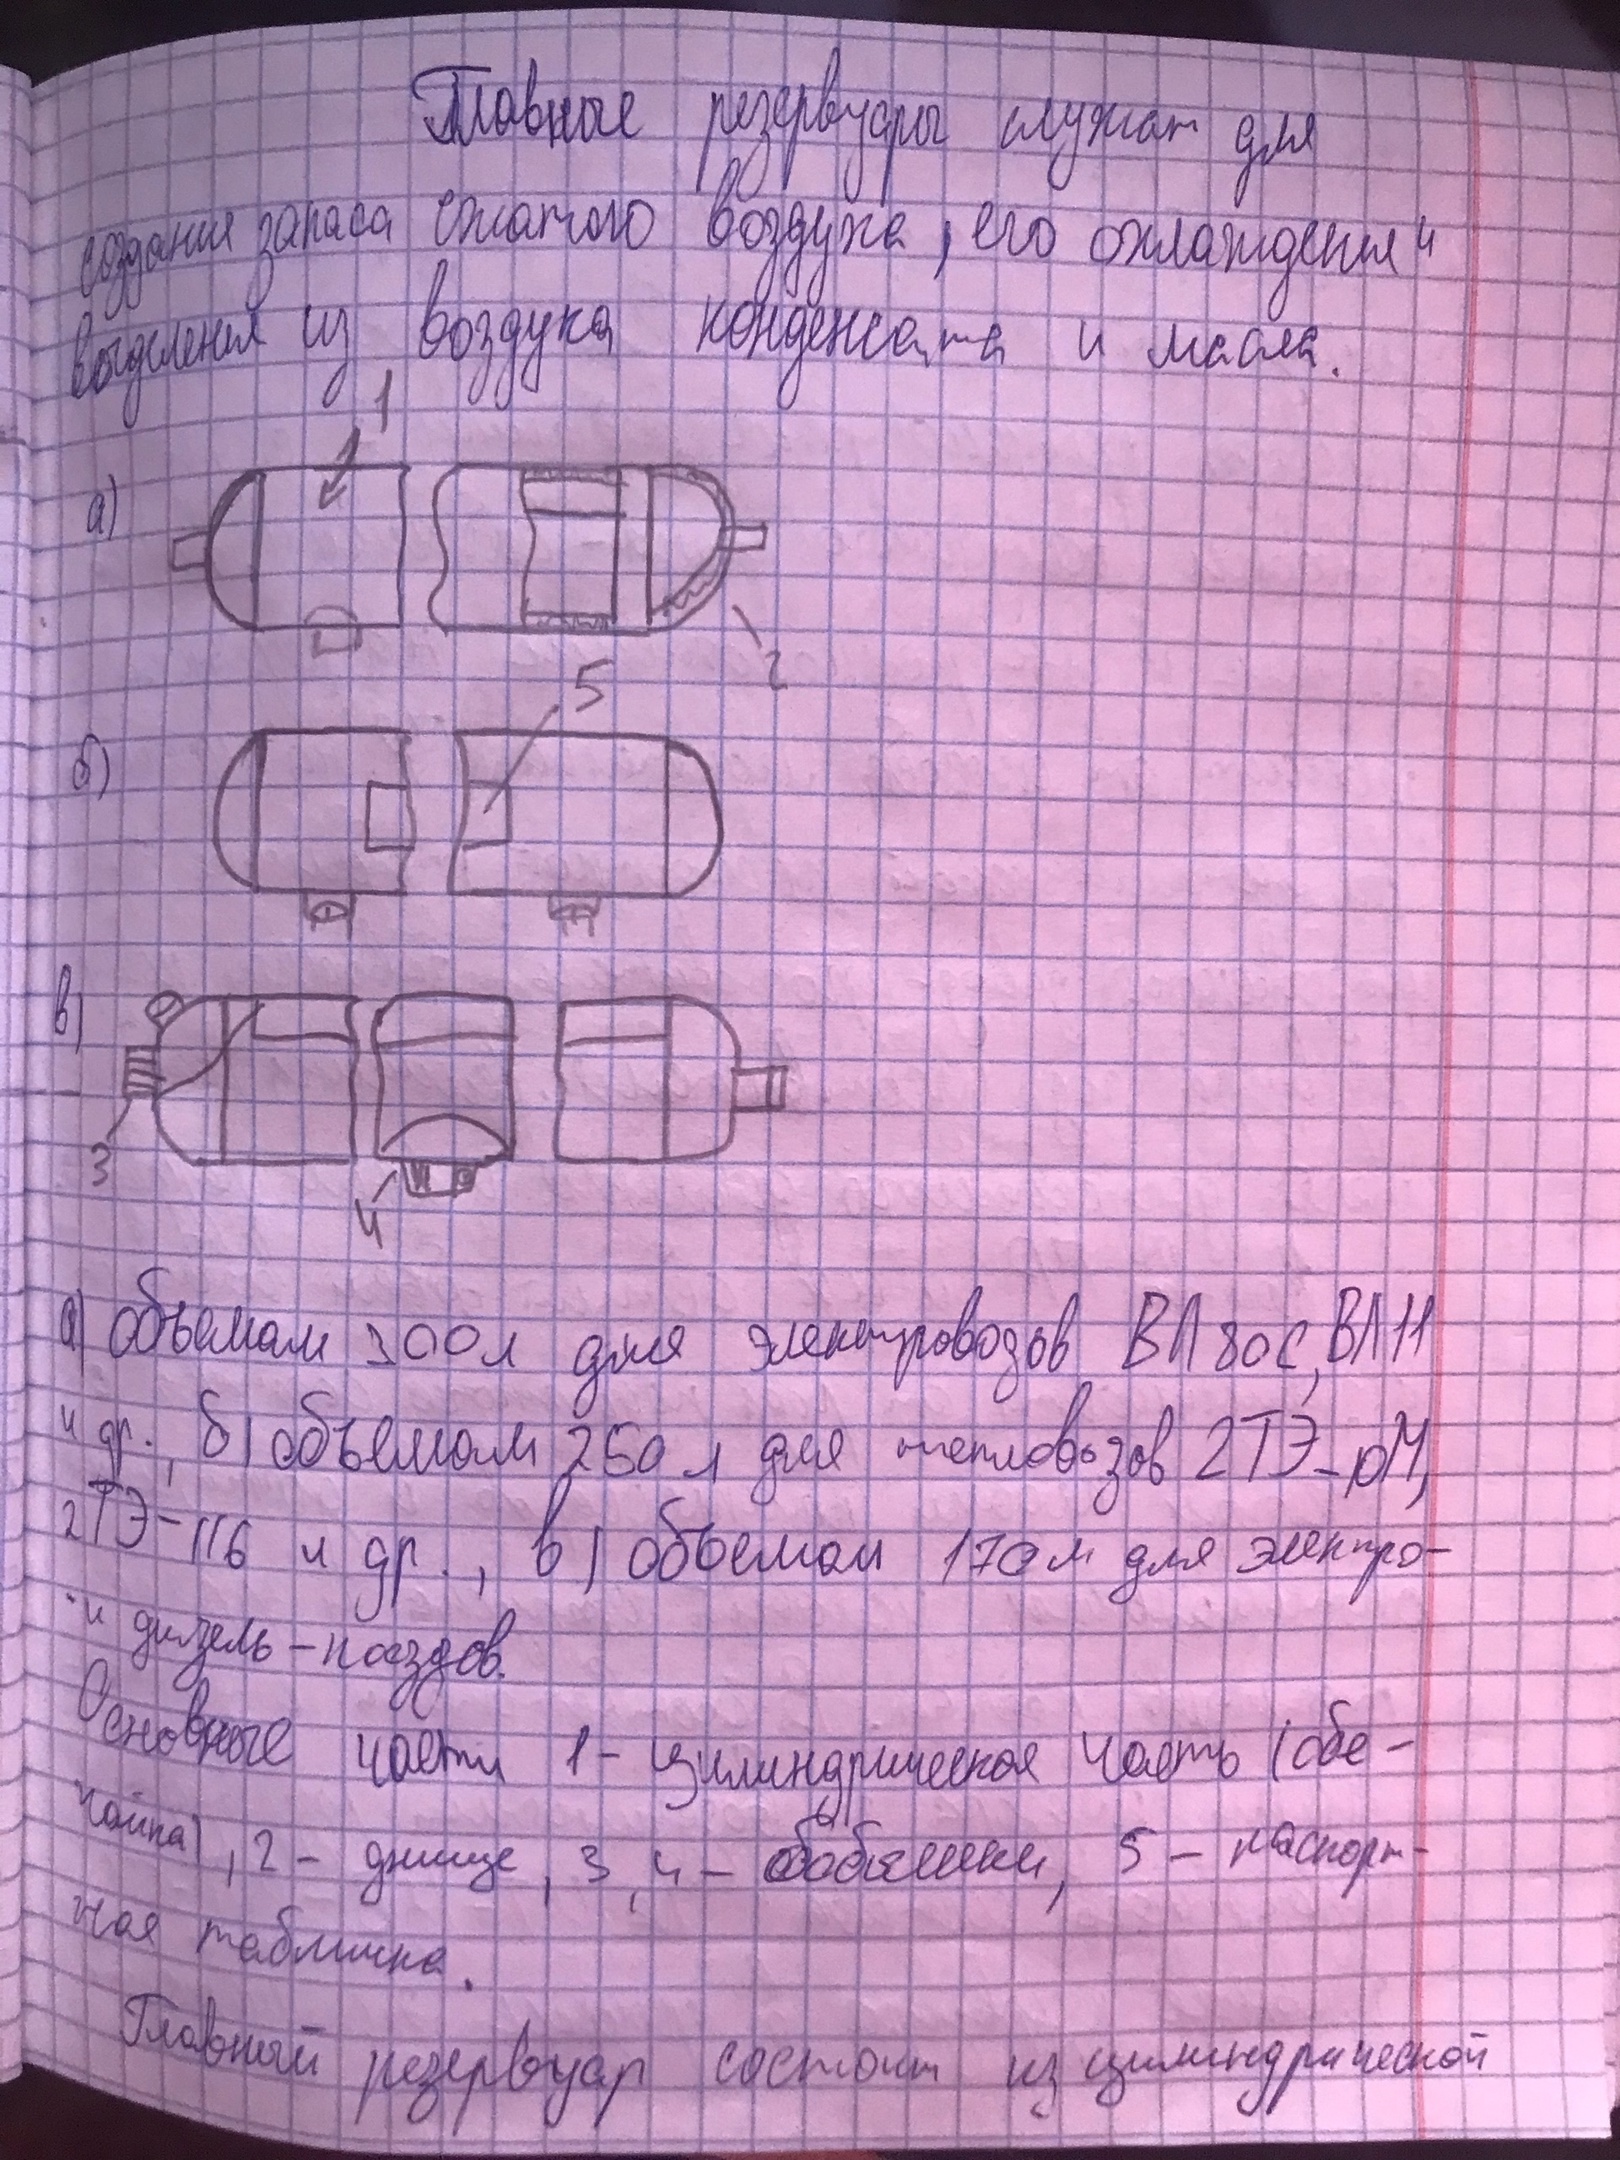 Главные резервуары служат для
создания запаса сжатого воздуха, его охлаждения и
выделения из воздуха конденсата и масла.
1
а)
2
5
б)
в)
3
4
а) объемом 300л для электровозов ВЛ80С, ВЛ11
и др., б) объемом 250 л для тепловозов 2ТЭ-10М,
2ТЭ-116 и др., в) объемом 170л для электро-
-и дизель-поездов.
Основные части 1- цилиндрическая часть (обе-
чайка), 2- днище, 3,4- бобышки, 5- паспорт-
ная табличка.
Главный резервуар состоит из цилиндрической